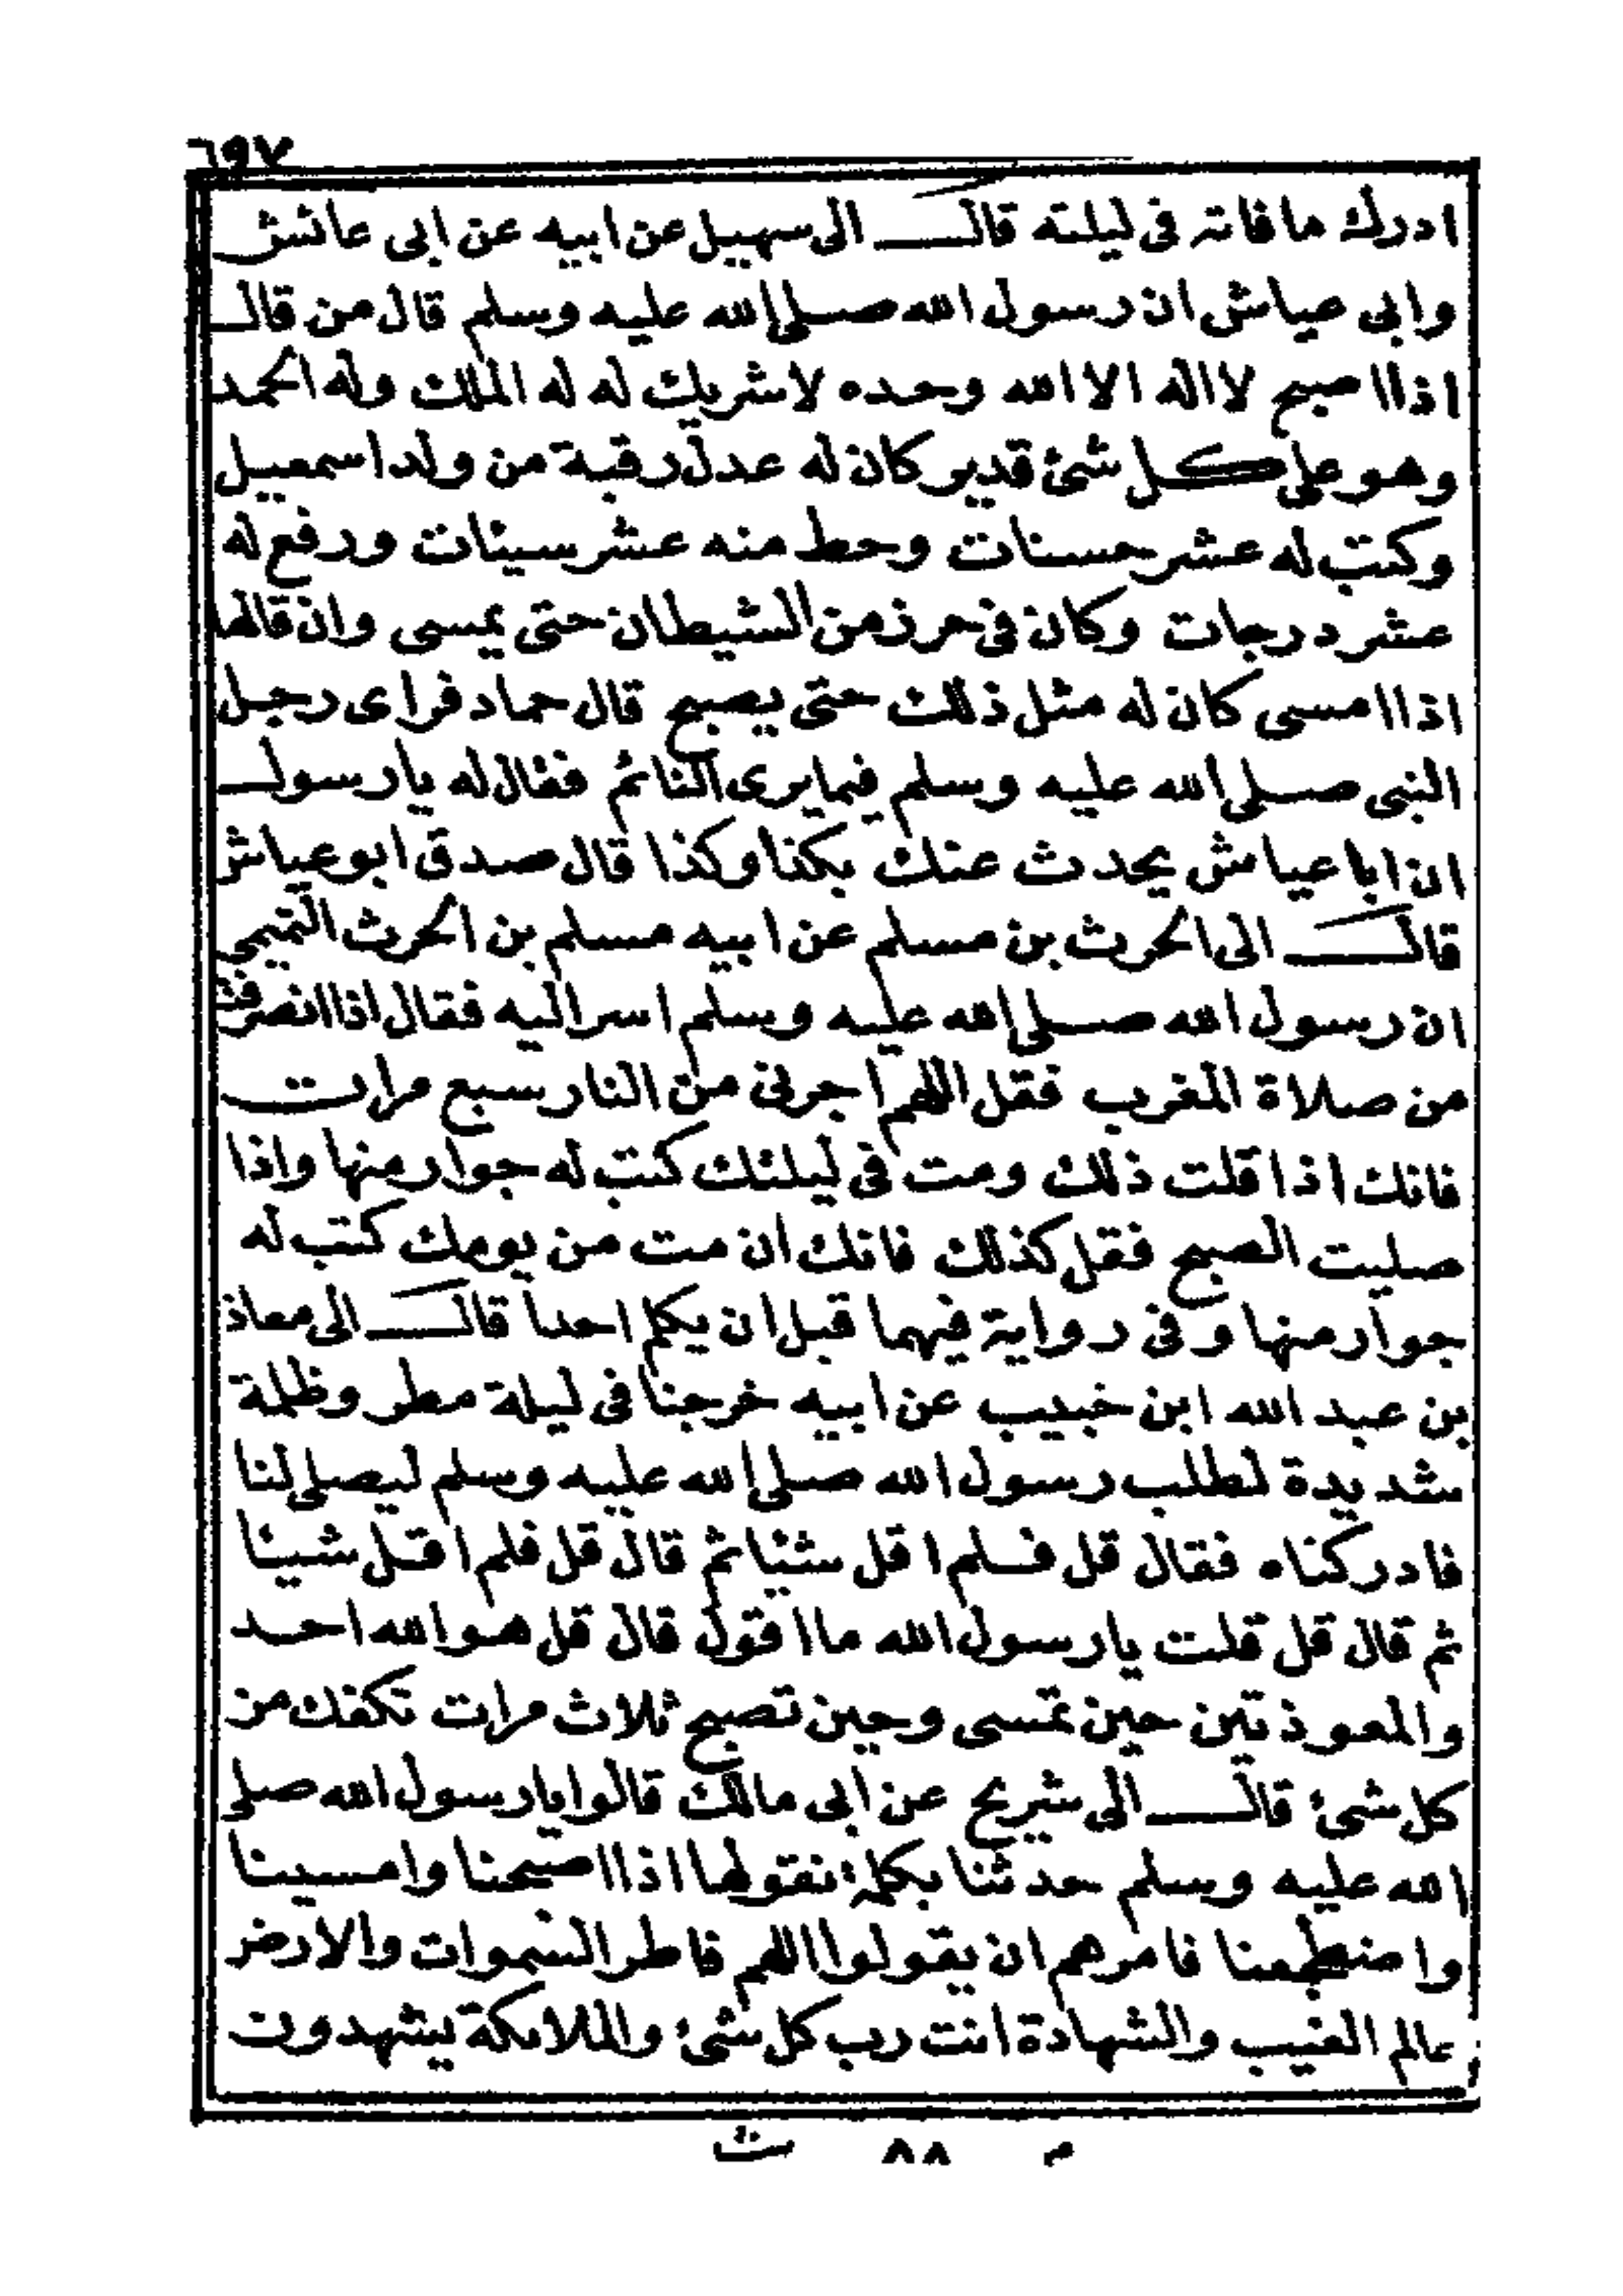 ٦٩٧
ادرك ما فاته فى ليلته قال الى سهيل عن ابيه عن ابى عائش
وابى عياش ان رسول الله صلى الله عليه وسلم قال من قال
اذا اصبح لا اله الا الله وحده لا شريك له له الملك وله الحمد
وهو على كل شئ قدير كان له عدل رقبة من ولد اسمعيل
وكتب له عشر حسنات وحط منه عشر سيئات ورفع له
عشر درجات وكان فى حرز من الشيطان حتى يمسى وان قالها
اذا امسى كان له مثل ذلك حتى يصبح قال حماد فراى رجل
النبى صلى الله عليه وسلم فيما يرى النائم فقال له يا رسول
ان ابا عياش يحدث عنك بكذا وكذا قال صدق ابو عياش
قال الى الحرث بن مسلم عن ابيه مسلم بن الحرث التميمى
ان رسول الله صلى الله عليه وسلم اسر اليه فقال اذا انصرفت
من صلاة المغرب فقل اللهم اجرنى من النار سبع مرات
فانك اذا قلت ذلك ومت فى ليلتك كتب له جوار منها واذا
صليت الصبح فقل كذلك فانك ان مت من يومك كتب له
جوار منها وفى رواية فيهما قبل ان يكلم احدا قال الى معاذ
بن عبد الله ابن خبيب عن ابيه خرجنا فى ليلة مطر وظلمة
شديدة لطلب رسول الله صلى الله عليه وسلم ليصلى لنا
فادركناه فقال قل فلم اقل شيئا ثم قال قل فلم اقل شيئا
ثم قال قل قلت يا رسول الله ما اقول قال قل هو الله احد
والمعوذتين حين تمسى وحين تصبح ثلاث مرات تكفك من
كل شئ قال الى شريح عن ابى مالك قالوا يا رسول الله صلى
الله عليه وسلم حدثنا بكلمة نقولها اذا اصبحنا وامسينا
واضطجعنا فامرهم ان يقولوا اللهم فاطر السموات والارض
عالم الغيب والشهادة انت رب كل شئ والملائكة يشهدون
م ٨٨ ث